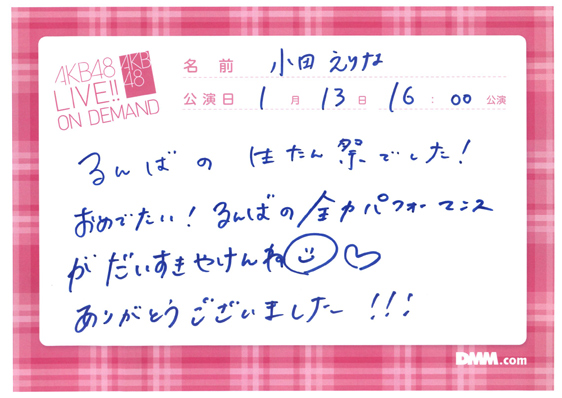 AKB48
LIVE!!
ON DEMAND
AKB
48
名前 小田えりな
公演日 1月13日 16:00 公演
るんばの 生たん祭でした!
おめでたい! るんばの全力パフォーマンス
がだいすきやけんね
ありがとうございましたー!!!
DMM.com